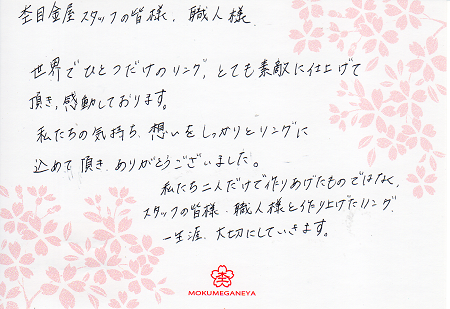 杢目金屋スタッフの皆様、職人様
世界でひとつだけのリング、とても素敵に仕上げて
頂き、感動しております。
私たちの気持ち、想いをしっかりとリングに
込めて頂き、ありがとうございました。
私たち二人だけで作りあげたものではなく、
スタッフの皆様、職人様と作り上げたリング、
一生涯、大切にしていきます。
MOKUMEGANEYA